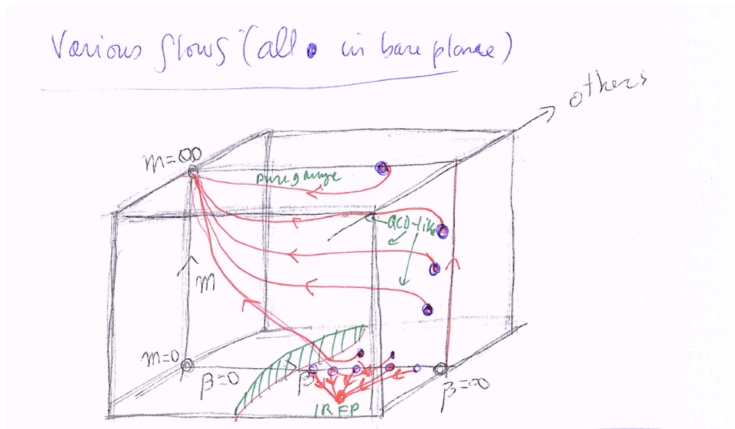 Various flows (all • in bare plane)
others
m=∞
pure gauge
QCD-like
m
m=0
β=0
β
β=∞
IRFP